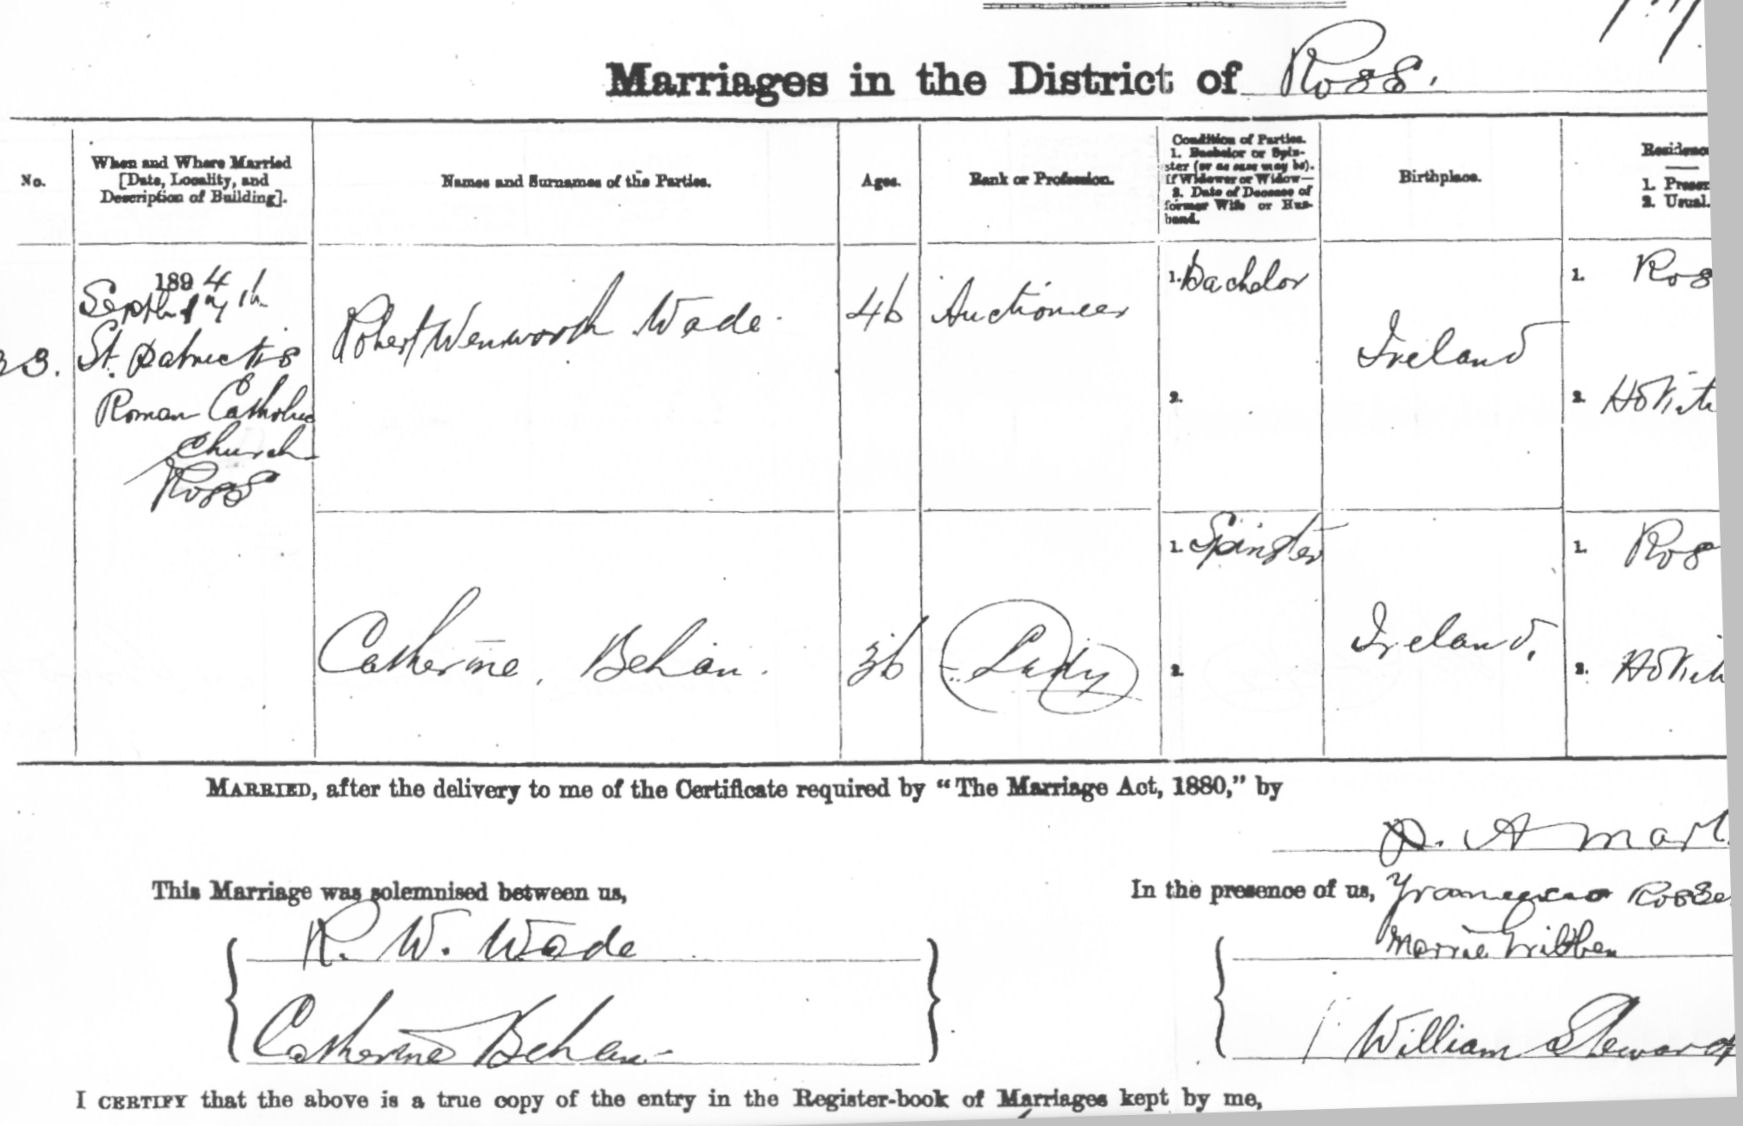 Marriages in the District of Ross.
No.
When and Where Married
[Date, Locality, and
Description of Building].
Names and Surnames of the Parties.
Ages.
Rank or Profession.
Condition of Parties.
1. Bachelor or Spin-
ster (or as case may be).
If Widower or Widow—
2. Date of Decease of
former Wife or Hus-
band.
Birthplace.
Residence
1. Present
2. Usual.
1894
Septr 17th
St. Patrick's
Roman Catholic
Church
Ross
Robert Wenworth Wade.
46
Auctioneer
1. Bachelor
2.
Ireland
1. Ros
2. Hokiti
Catherine Behan.
36
Lady
1. Spinster
2.
Ireland.
1. Ros
2. Hokit
MARRIED, after the delivery to me of the Certificate required by "The Marriage Act, 1880," by
D. A Mart
This Marriage was solemnised between us,
R. W. Wade
Catherine Behan
In the presence of us,
William Stewart
I CERTIFY that the above is a true copy of the entry in the Register-book of Marriages kept by me,